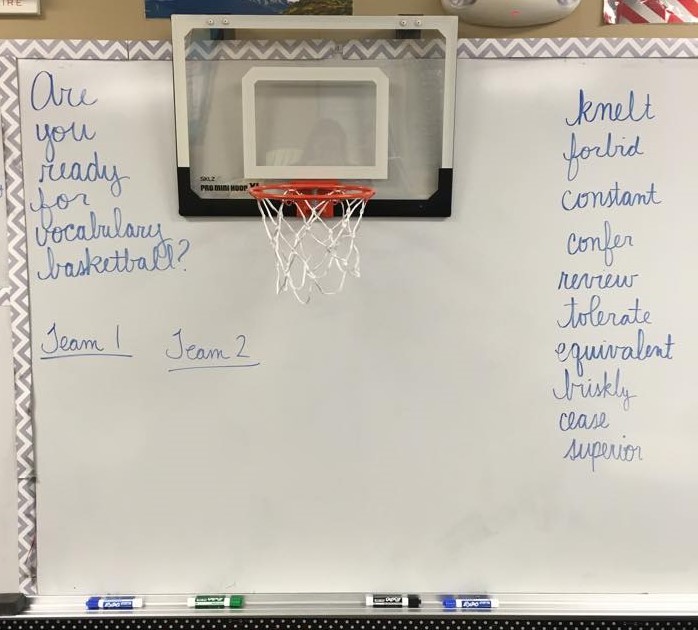 Are
you
ready
for
vocabulary
basketball?
Team 1
Team 2
SKLZ
PRO MINI HOOP XL
knelt
forbid
constant
confer
review
tolerate
equivalent
briskly
cease
superior
EXPO
EXPO
EXPO